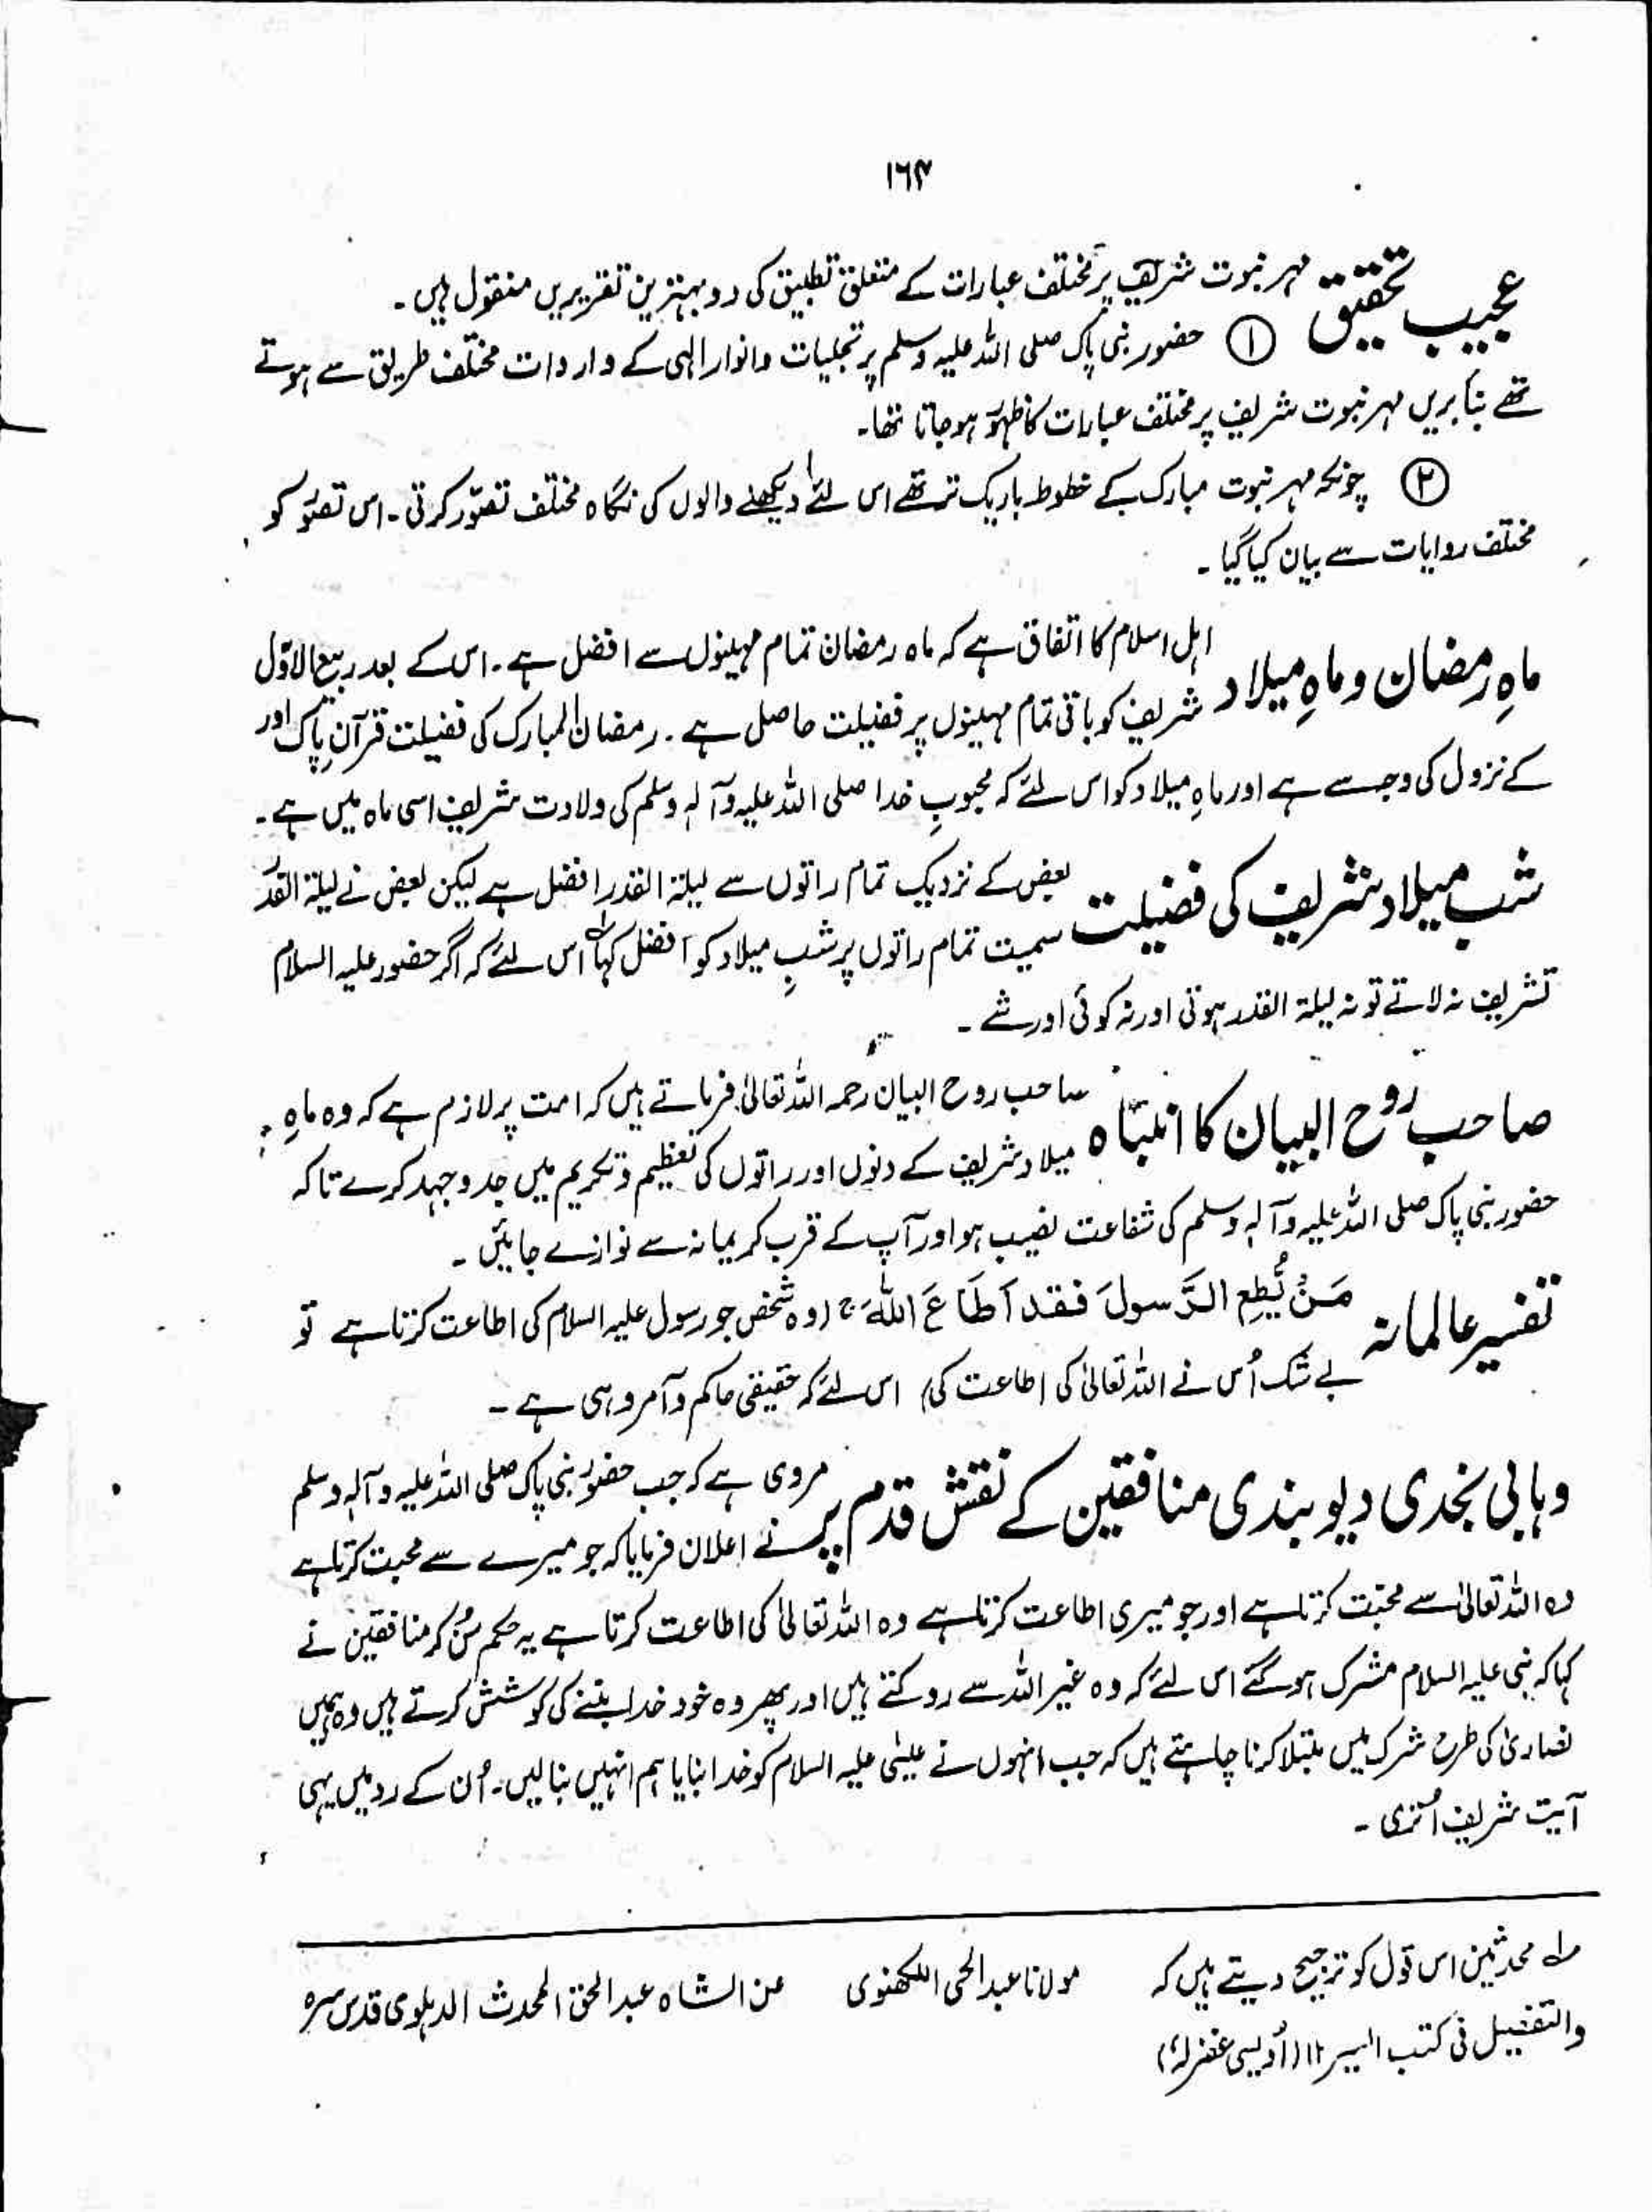 ۱۶۴
عجیب تحقیق مہر نبوت شریف پر مختلف عبارات کے متعلق تطبیق کی دو بہترین تقریریں منقول ہیں۔
① حضور نبی پاک صلی اللہ علیہ وسلم پر تجلیات وانوار الہی کے واردات مختلف طریق سے ہوتے
تھے بنا بریں مہر نبوت شریف پر مختلف عبارات کا ظہور ہو جاتا تھا۔
② چونکہ مہر نبوت مبارک کے خطوط باریک تر تھے اس لئے دیکھنے والوں کی نگاہ مختلف تصوّر کرتی۔ اس تصوّر کو
مختلف روایات سے بیان کیا گیا۔
ماہِ رمضان و ماہِ میلاد اہل اسلام کا اتفاق ہے کہ ماہ رمضان تمام مہینوں سے افضل ہے۔ اس کے بعد ربیع الاوّل
شریف کو باقی تمام مہینوں پر فضیلت حاصل ہے۔ رمضان المبارک کی فضیلت قرآنِ پاک اور
کے نزول کی وجہ سے ہے اور ماہِ میلاد کو اس لئے کہ محبوبِ خدا صلی اللہ علیہ وآلہٖ وسلم کی ولادت شریف اسی ماہ میں ہے۔
شبِ میلاد شریف کی فضیلت بعض کے نزدیک تمام راتوں سے لیلۃ القدر افضل ہے لیکن بعض نے لیلۃ القدر
سمیت تمام راتوں پر شبِ میلاد کو افضل کہا ؎۱ اس لئے کہ اگر حضور علیہ السلام
تشریف نہ لاتے تو نہ لیلۃ القدر ہوتی اور نہ کوئی اور شے۔
صاحب روح البیان کا انتباہ صاحب روح البیان رحمہ اللہ تعالیٰ فرماتے ہیں کہ امت پر لازم ہے کہ وہ ماہِ
میلاد شریف کے دنوں اور راتوں کی تعظیم و تکریم میں جدوجہد کرے تاکہ
حضور نبی پاک صلی اللہ علیہ وآلہٖ وسلم کی شفاعت نصیب ہو اور آپ کے قرب کریمانہ سے نوازے جائیں۔
تفسیر عالمانہ مَنْ یُّطِعِ الرَّسولَ فقد اَطَاعَ اللّٰہَ ج (وہ شخص جو رسول علیہ السلام کی اطاعت کرتا ہے تو
بے شک اُس نے اللہ تعالیٰ کی اطاعت کی) اس لئے کہ حقیقی حاکم و آمر وہی ہے۔
وہابی نجدی دیوبندی منافقین کے نقش قدم پر مروی ہے کہ جب حضور نبی پاک صلی اللہ علیہ وآلہٖ وسلم
نے اعلان فرمایا کہ جو میرے سے محبت کرتا ہے
وہ اللہ تعالیٰ سے محبّت کرتا ہے اور جو میری اطاعت کرتا ہے وہ اللہ تعالیٰ کی اطاعت کرتا ہے یہ حکم سُن کر منافقین نے
کہا کہ نبی علیہ السلام مشرک ہو گئے اس لئے کہ وہ غیر اللہ سے روکتے ہیں اور پھر وہ خود خدا بننے کی کوشش کرتے ہیں وہ ہمیں
نصاریٰ کی طرح شرک میں مبتلا کرنا چاہتے ہیں کہ جب انہوں نے عیسٰی علیہ السلام کو خدا بنایا ہم انہیں بنا لیں۔ اُن کے رد میں یہی
آیت شریف اُتری۔
؎۱ محدثین اس قول کو ترجیح دیتے ہیں کہ مولانا عبدالحی اللکھنوی عن الشاہ عبدالحق المحدث الدہلوی قدس سرہ
والتفصیل فی کتب السیر ۱۲ (اُویسی غفرلہٗ)